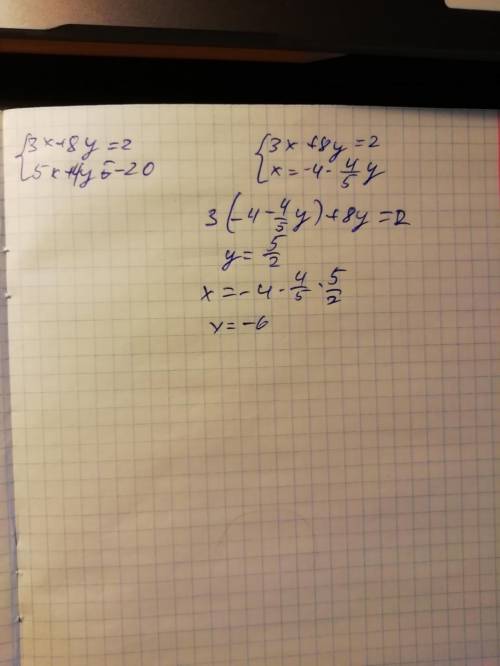 {3x+8y=2
5x+4y=-20
{3x+8y=2
x=-4-4/5y
3(-4-4/5y)+8y=2
y=5/2
x=-4-4/5·5/2
x=-6